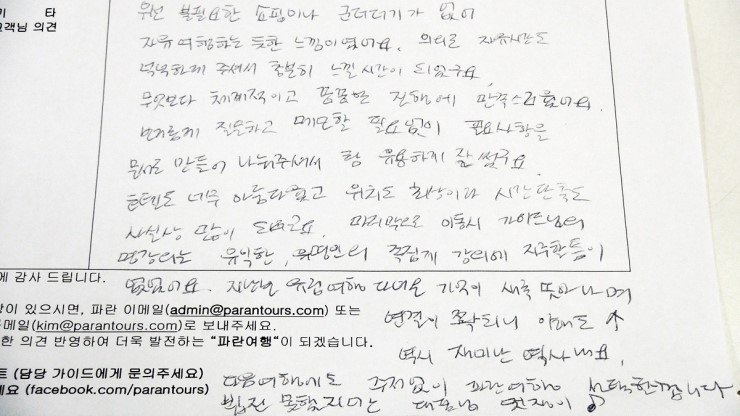 기 타
고객님 의견
우선 불필요한 쇼핑이나 군더더기가 없어
자유여행하는 듯한 느낌이었어요. 의외로 자유시간도
넉넉하게 주셔서 충분히 느낄 시간이 되었구요
무엇보다 체계적이고 꼼꼼한 진행에 만족스러웠어요.
번거롭게 질문하고 메모할 필요없이 필요사항을
문서로 만들어 나눠주셔서 참 유용하게 잘 썼구요.
호텔도 너무 아름다웠고 위치도 최상이라 시간단축도
사실상 많이 되었구요. 마지막으로 이동시 가이드님의
명강의는 유익한, 강의에 지루할틈이
없었어요. 지난번 유럽여행 다녀온 기억이 새록 돋아나며
연결이 쫘악되니 이해도 ↑
역시 재미난 역사네요,
다음여행에도 주저없이 파란여행 선택한깝니다.
에 감사 드립니다.
이 있으시면, 파란 이메일(admin@parantours.com) 또는
메일(kim@parantours.com)로 보내주세요.
한 의견 반영하여 더욱 발전하는 "파란여행"이 되겠습니다.
트 (담당 가이드에게 문의주세요)
요 (facebook.com/parantours)